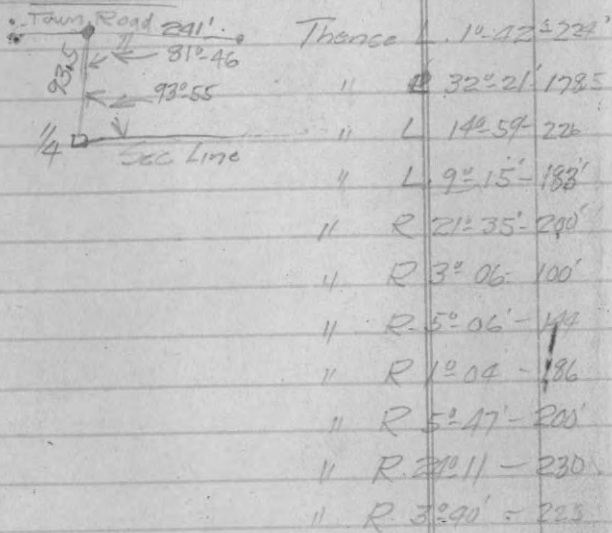 Town Road 241'
81º-46
93.5
93º-55
1/4
Sec Line
Thence L. 1º-42'-224'
" 32º-21'-178.5
" L 14º-59'-226
" L. 9º-15'-183'
" R 21º-35'-200'
" R 3º 06-100'
" R. 5º-06'-144
" R 1º 04'-186
" R 5º-47'-200'
" R. 24º11-230
" R. 3º40'-223